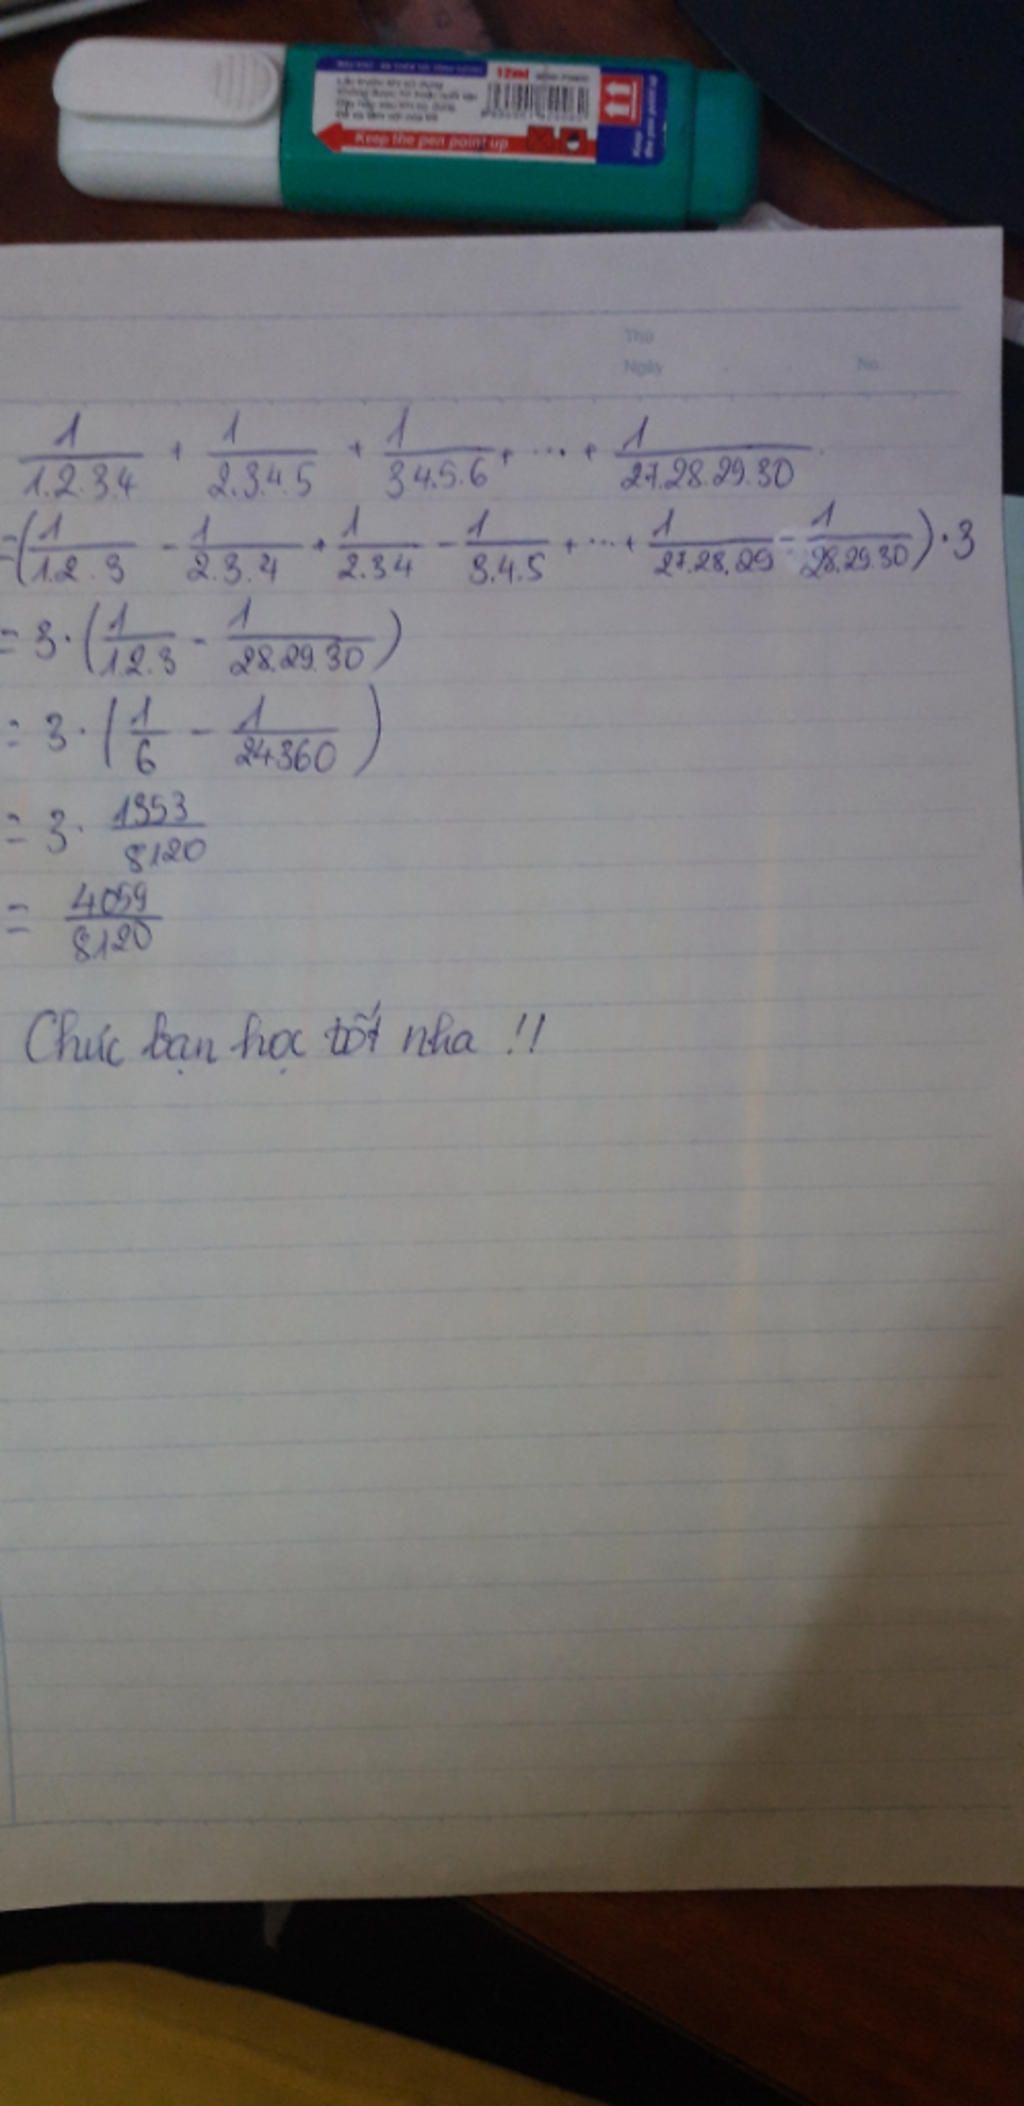 12ml
Keep the pen point up
Keep the pen point up
Thứ
Ngày
No.
1/1.2.3.4 + 1/2.3.4.5 + 1/3 4.5.6 + ... + 1/27.28.29.30
=(1/1.2.3 - 1/2.3.4 + 1/2.3 4 - 1/3.4.5 + ... + 1/27.28.29 - 1/28.29.30).3
= 3.(1/1.2.3 - 1/28.29.30)
= 3.(1/6 - 1/24360)
= 3. 1353/8120
= 4059/8120
Chúc bạn học tốt nha !!